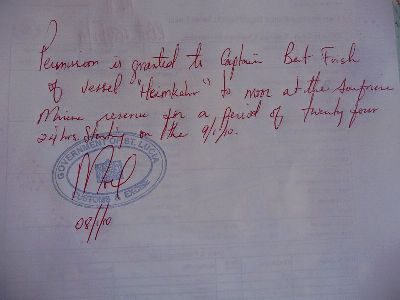 Permission is granted to Captain Bert Frish
of vessel "Heimkehr" to moor at the Soufriere
Marine reserve for a period of twenty four
24 hrs. Start on the 9/1/10.
GOVERNMENT OF ST. LUCIA
CUSTOMS & EXCISE
08/1/10